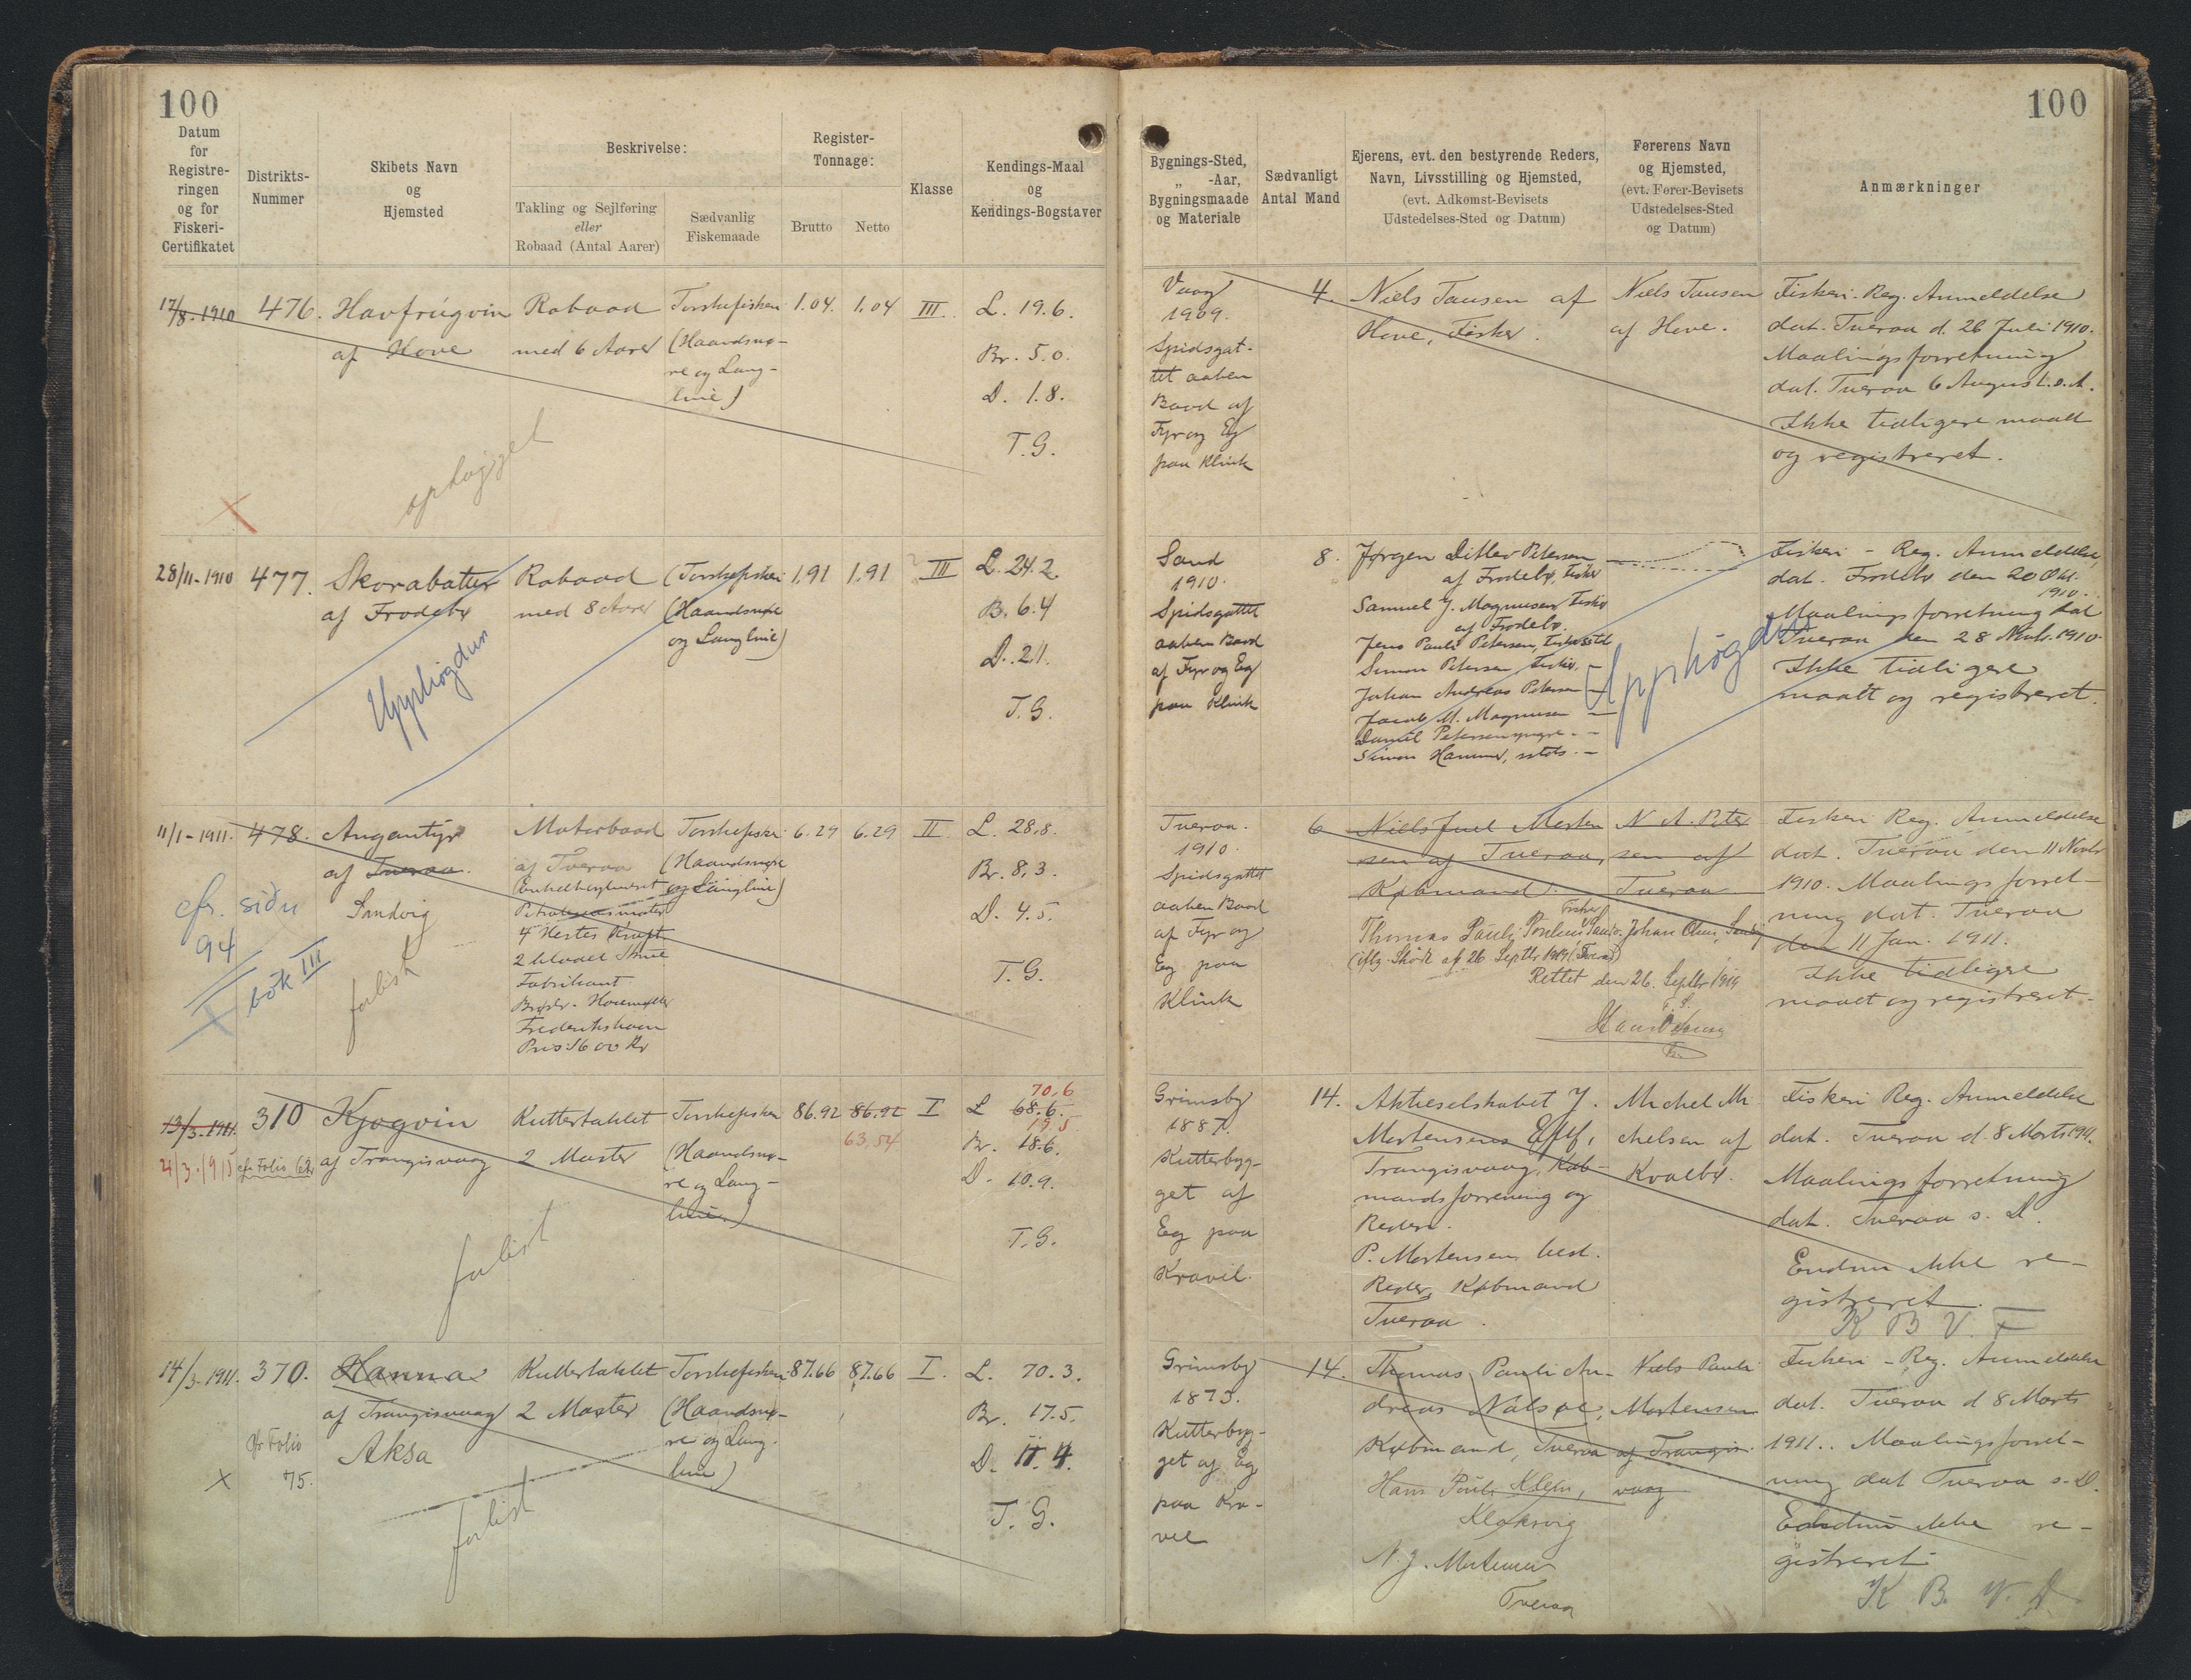 100
Datum
for
Registre-
ringen
og for
Fiskeri-
Certifikatet
Distrikts-
Nummer
Skibets Navn
og
Hjemsted
Beskrivelse:
Takling og Sejlføring
eller
Robaad (Antal Aarer)
Sædvanlig
Fiskemaade
Register-
Tonnage:
Brutto
Netto
Klasse
Kendings-Maal
og
Kendings-Bogstaver
17/8-1910
476.
Havfrúgvin
af Hove
Robaad
med 6 Aarer
Torskefiskeri
(Haandsnø-
re og Lang-
line)
1.04.
1.04
III.
L. 19.6.
Br. 5.0.
D. 1.8.
T.G.
ophugget
28/11-1910
477.
Skorabatur
af Frodebø
Robaad
med 8 Aarer
(Torskefiskeri
(Haandsnøre
og Langline)
1,91
1,91
III
L. 24.2
B. 6.4
D. 2.1.
T.G.
Upphøgdur
11/1-1911.
478.
Angantýr
af Tveraa.
Sandvig
cfr. siðu
94
bók III
forlist
Motorbaad
af Tveraa
Enkeltcylindret
Petroleumsmotor
4 Hestes Kraft
2 bladet Skrue
Fabrikant
Brødr. Houmøller
Frederikshavn
Pris: 1600 Kr
Torskefiskeri
(Haandsnøre
og Langline)
6.29
6.29
II
L. 28,8.
Br. 8,3.
D. 4.5.
T.G.
13/3-1911.
4/3-1915
310
cfr Folio 62
Kjogvin
af Trangisvaag
Kuttertaklet
2 Master
Torskefiskeri
(Haandsnø-
re og Lang-
line)
86.92
86.92
63,54
I
L 68.6. 70,6
Br. 18.6. 19.5
D. 10.9.
T.G.
forlist
14/3-1911.
370.
Hanna
af Trangisvaag
Aksa
cfr Folio
75.
Kuttertaklet
2 Master
Torskefiskeri
(Haandsnø-
re og Lang-
line)
87.66
87.66
I.
L. 70.3.
Br. 17.5.
D. 11.4.
T.G.
forlist
100
Bygnings-Sted,
„ -Aar,
Bygningsmaade
og Materiale
Sædvanligt
Antal Mand
Ejerens, evt. den bestyrende Reders,
Navn, Livsstilling og Hjemsted,
(evt. Adkomst-Bevisets
Udstedelses-Sted og Datum)
Førerens Navn
og Hjemsted,
(evt. Fører-Bevisets
Udstedelses-Sted
og Datum)
Anmærkninger
Vaag
1909.
Spidsgat-
tet aaben
Baad af
Fyr og Eg
paa Klink
4.
Niels Tausen af
Hove, Fisker.
Niels Tausen
af Hove.
Fiskeri-Reg. Anmeldelse
dat. Tveraa d. 26 Juli 1910.
Maalingsforretning
dat. Tveraa 6 August s. A.
Ikke tidligere maalt
og registreret.
Sand
1910.
Spidsgattet
aaben Baad
af Fyr og Eg
paa Klink
8.
Jørgen Ditlev Petersen
af Frodebø, Fisker
Samuel J. Magnusen Fisker
af Frodebø.
Jens Pauli Petersen, Fisker
Simon Petersen Fisker. –
Johan Andreas Petersen –
Jacob M. Magnusen –
Daniel Petersen yngre. –
Simon Hammer, –
Upphøgdur
Fiskeri - Reg. Anmeldelse,
dat. Frodebø den 20 Okt.
1910.
Maalingsforretning dat
Tveraa den 28 Novbr. 1910
Ikke tidligere
maalt og registreret.
Tveraa.
1910.
Spidsgattet
aaben Baad
af Fyr og
Eg paa
Klink
6
Niels Juel Morten
sen af Tveraa,
Købmand.
Thomas Pauli Poulsen Fisker
(iflg. Skøde af 26 Septbr 1919 (Tveraa)
Rettet den 26. Septbr 1919
N. A. Peter
sen af
Tveraa
Johan Olsen,
Fiskeri Reg. Anmeldelse
dat. Tveraa den 11 Novbr
1910. Maalings forret-
ning dat. Tveraa
den 11 Jan. 1911.
Ikke tidligere
maalt og registreret.
Grimsby
1887.
Kutterbyg-
get af
Eg paa
Kravel.
14.
Aktieselskabet J.
Mortensens Eftf,
Trangisvaag, Køb-
mandsforretning og
Rederi.
P. Mortensen best.
Reder, Købmand
Tveraa.
Michel Mi
chelsen af
Kvalbø.
Fiskeri Reg. Anmeldelse
dat. Tveraa d. 8 Marts 1911.
Maalings forretning
dat. Tveraa s. D.
Endnu ikke re-
gistreret.
K B V. F
Grimsby
1873.
Kutterbyg-
get af Eg
paa Kra-
vel
14.
Thomas Pauli An-
dreas Nalsøe,
Købmand, Tveraa
Hans Pauli Klein,
Klaksvig
N. J. Mortensen
Tveraa
Niels Pauli
Mortensen
af Trangis-
vaag
Fiskeri - Reg. Anmeldelse
dat. Tveraa d 8 Marts
1911. Maalings forret-
ning dat Tveraa s. D.
Endnu ikke re-
gistreret.
K B. V. D